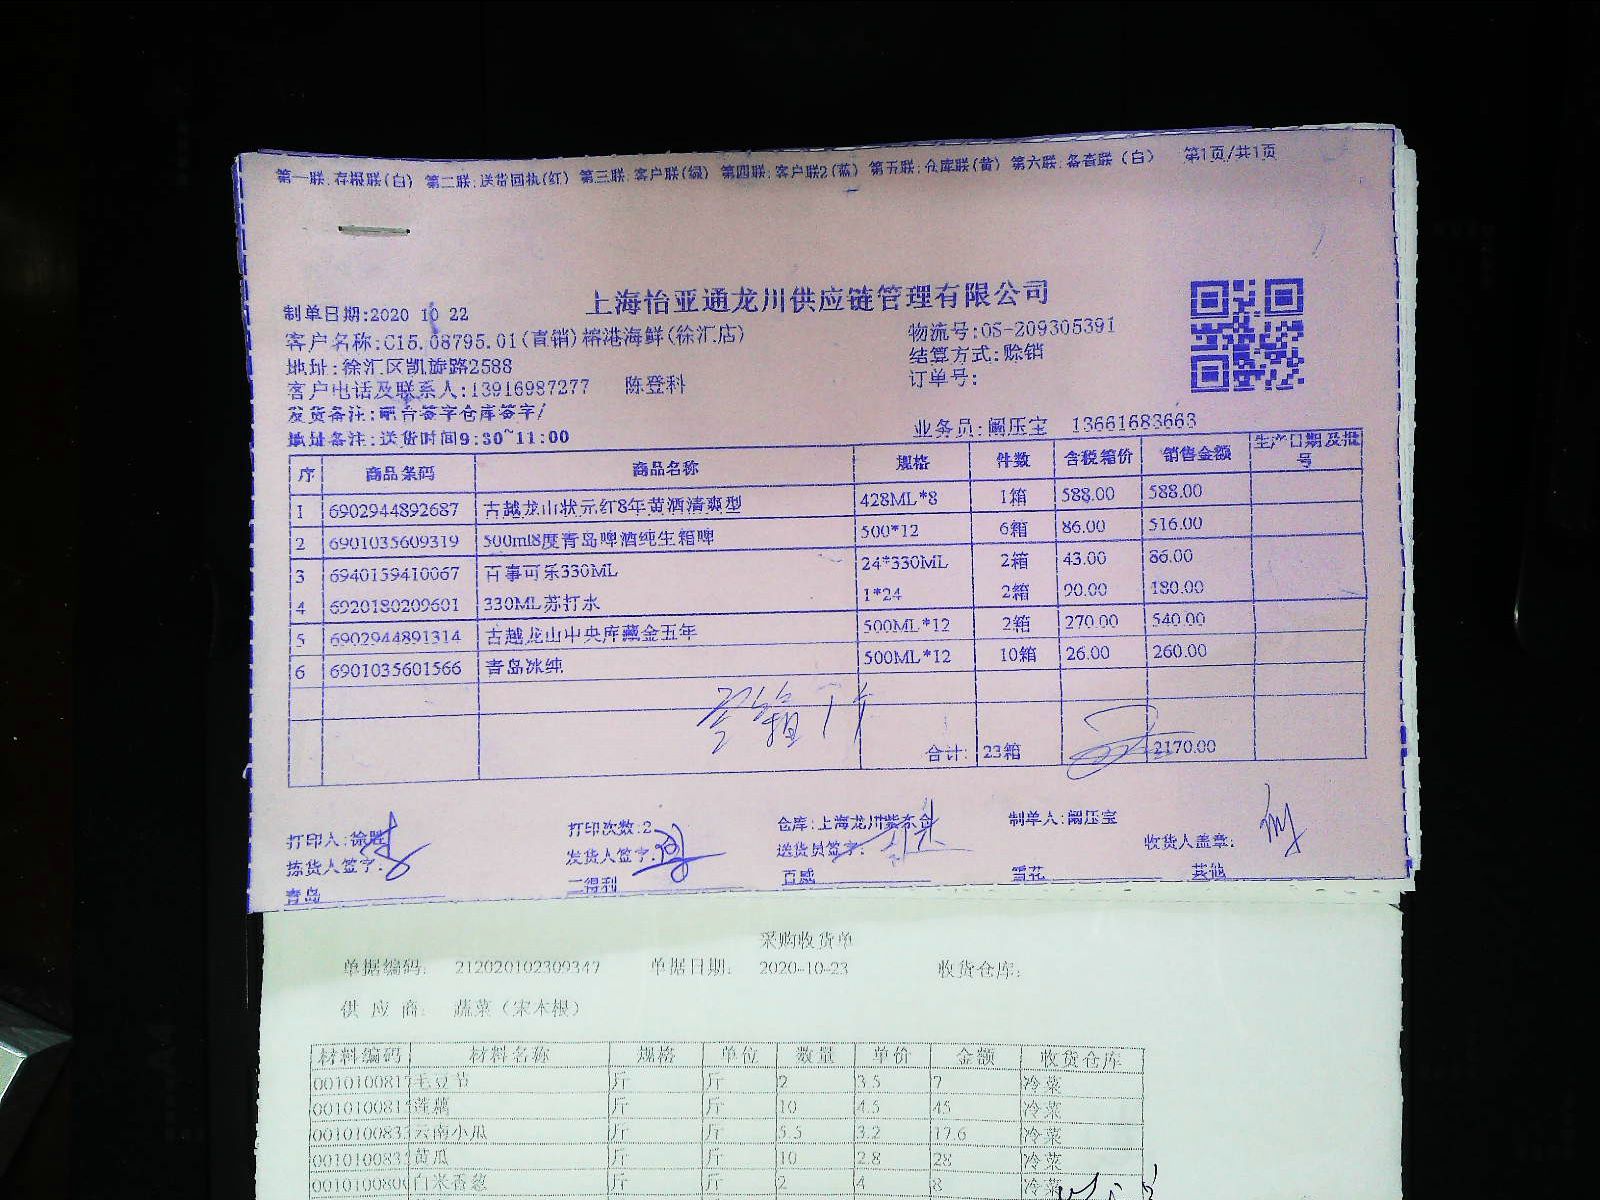 第一联:存根联(白) 第二联:送货回执(红) 第三联:客户联(绿) 第四联:客户联2(蓝) 第五联:仓库联(黄) 第六联:备查联(白) 第1页/共1页
上海怡亚通龙川供应链管理有限公司
制单日期:2020 10 22
客户名称:C15.08795.01(直销)榕港海鲜(徐汇店) 物流号:OS-209305391
地址:徐汇区凯旋路2588 结算方式:赊销
客户电话及联系人:13916987277 陈登科 订单号:
发货备注:吧台签字仓库签字/
地址备注:送货时间9:30~11:00 业务员:阚压宝 13661683663
序 商品条码 商品名称 规格 件数 含税箱价 销售金额 生产日期及批号
1 6902944892687 古越龙山状元红8年黄酒清爽型 428ML*8 1箱 588.00 588.00
2 6901035609319 500ml8度青岛啤酒纯生箱啤 500*12 6箱 86.00 516.00
3 6940159410067 百事可乐330ML 24*330ML 2箱 43.00 86.00
4 6920180209601 330ML苏打水 1*24 2箱 90.00 180.00
5 6902944891314 古越龙山中央库藏金五年 500ML*12 2箱 270.00 540.00
6 6901035601566 青岛冰纯 500ML*12 10箱 26.00 260.00
合计: 23箱 2170.00
打印人:徐胜 打印次数:2 仓库:上海龙川紫东仓 制单人:阚压宝 收货人盖章:
拣货人签字: 发货人签字: 送货员签字:
青岛 三得利 百威 雪花 其他
采购收货单
单据编码: 212020102309347 单据日期: 2020-10-23 收货仓库:
供 应 商: 蔬菜（宋本根）
材料编码 材料名称 规格 单位 数量 单价 金额 收货仓库
0010100817 毛豆节 斤 斤 2 3.5 7 冷菜
001010081 莲藕 斤 斤 10 4.5 45 冷菜
001010083 云南小瓜 斤 斤 5.5 3.2 17.6 冷菜
001010083 黄瓜 斤 斤 10 2.8 28 冷菜
001010080 白米香葱 斤 斤 2 4 8 冷菜